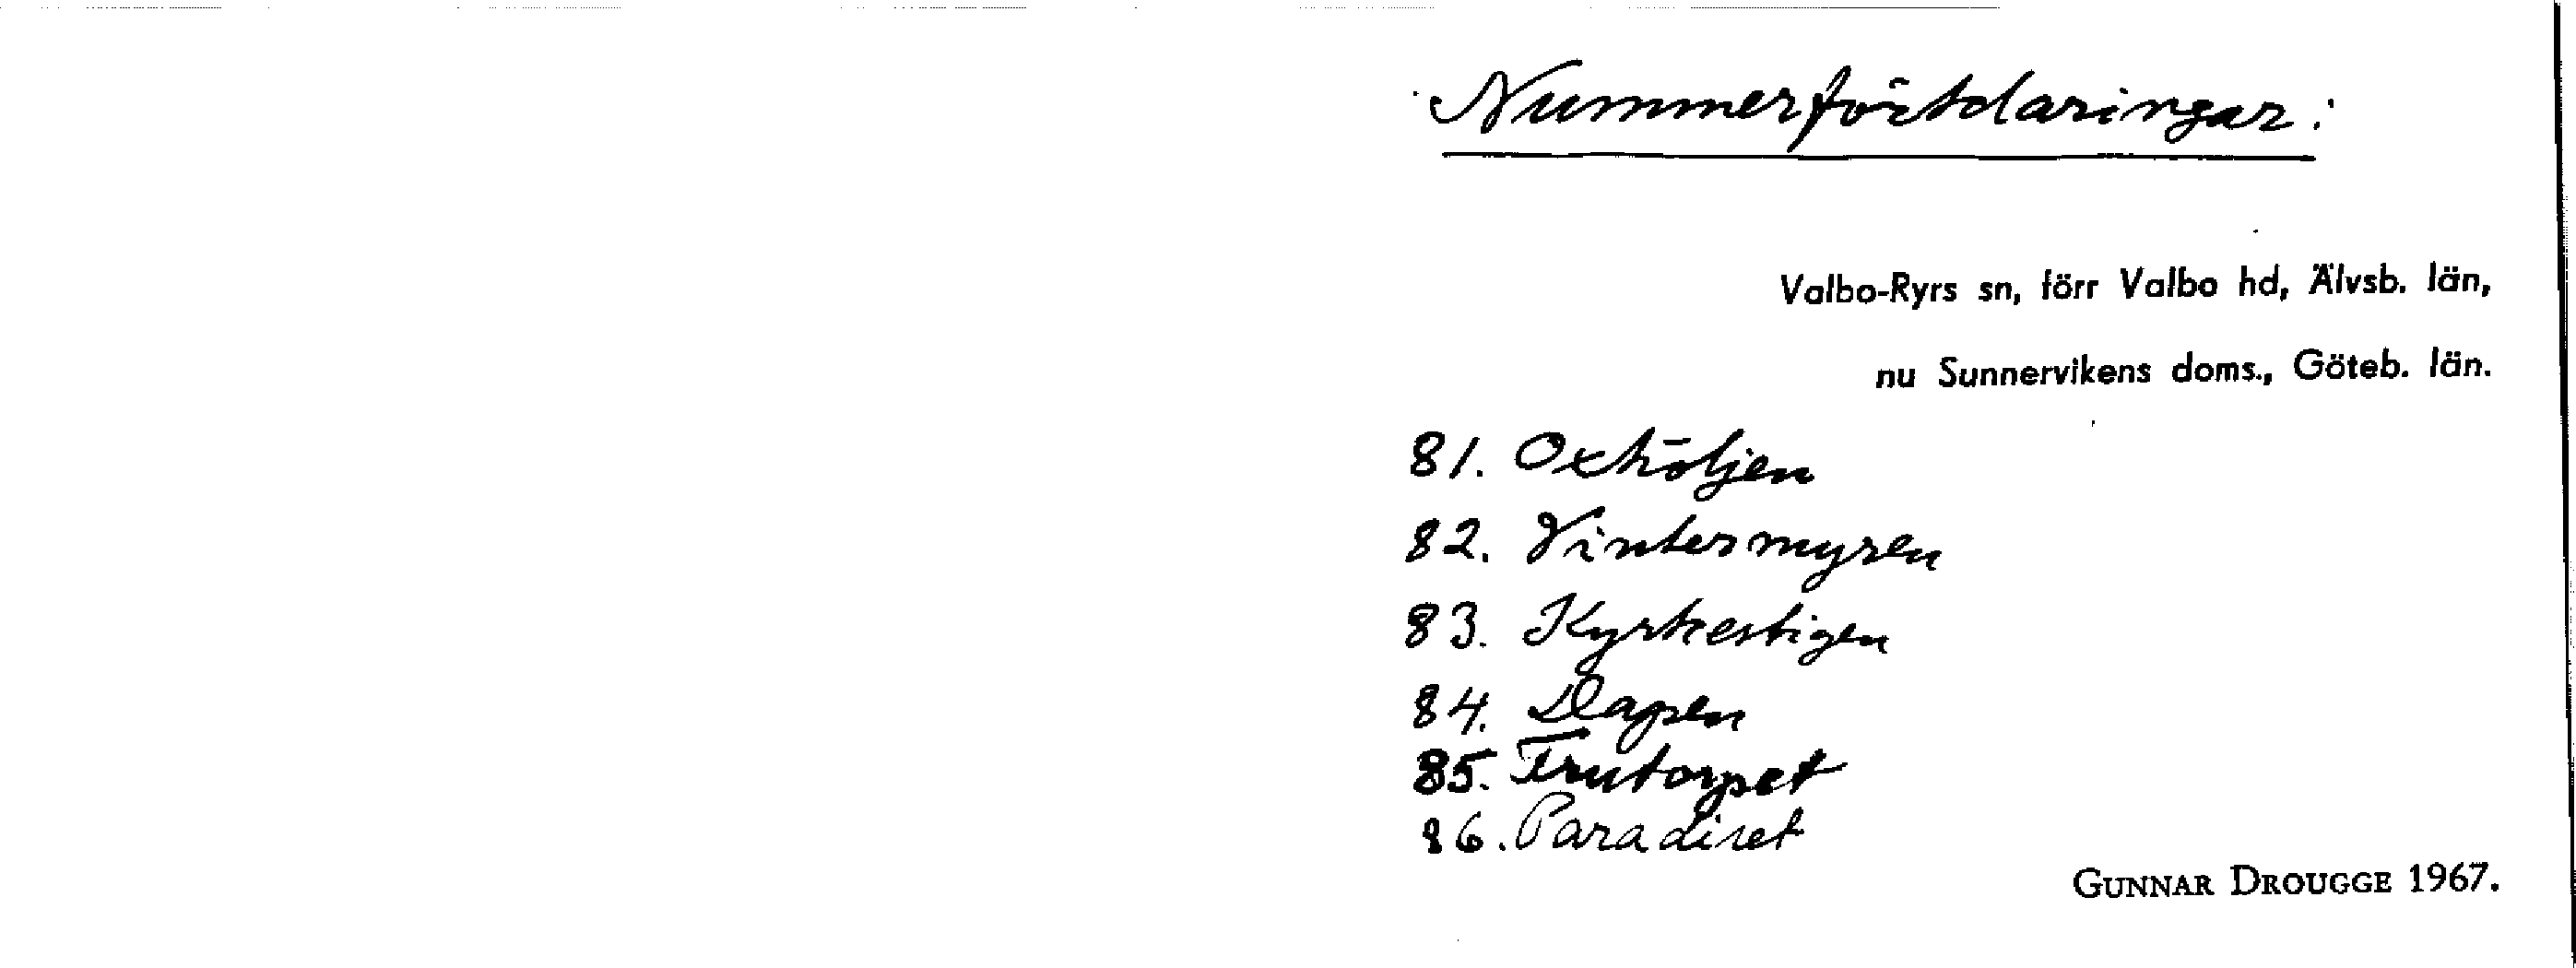 Nummerförklaringar:
Valbo-Ryrs sn, förr Valbo hd, Älvsb. län,
nu Sunnervikens doms., Göteb. län.
81. Oxhöljen
82. Vintermyren
83. Kyrkestigen
84. Slapen
85. Frutorpet
86. Paradiset
GUNNAR DROUGGE 1967.